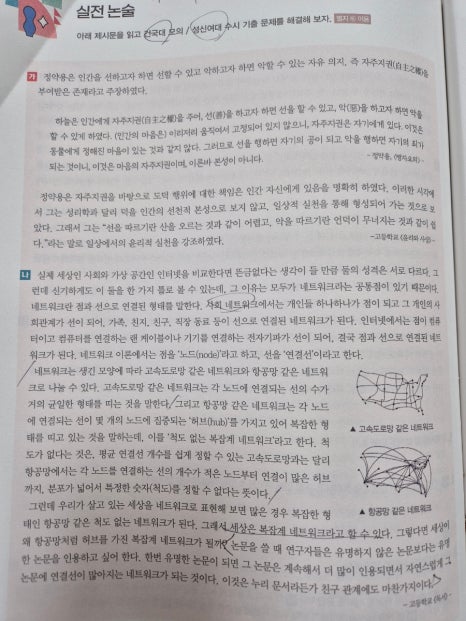 실전 논술
아래 제시문을 읽고 건국대 모의 / 성신여대 수시 기출 문제를 해결해 보자.
가 정약용은 인간을 선하고자 하면 선할 수 있고 악하고자 하면 악할 수 있는 자유 의지, 즉 자주지권(自主之權)을
부여받은 존재라고 주장하였다.
하늘은 인간에게 자주지권(自主之權)을 주어, 선(善)을 하고자 하면 선을 할 수 있고, 악(惡)을 하고자 하면 악을
할 수 있게 하였다. (인간의 마음은) 이리저리 움직여서 고정되어 있지 않으니, 자주지권은 자기에게 있다. 이것은
동물에게 정해진 마음이 있는 것과 같지 않다. 그러므로 선을 행하면 자기의 공이 되고 악을 행하면 자기의 죄가
되는 것이니, 이것은 마음의 자주지권이며, 이른바 본성이 아니다.
- 정약용, 〈맹자요의〉-
정약용은 자주지권을 바탕으로 도덕 행위에 대한 책임은 인간 자신에게 있음을 명확히 하였다. 이러한 시각에
서 그는 성리학과 달리 덕을 인간의 선천적 본성으로 보지 않고, 일상적 실천을 통해 형성되어 가는 것으로 보
았다. 그래서 그는 “선을 따르기란 산을 오르는 것과 같이 어렵고, 악을 따르기란 언덕이 무너지는 것과 같이 쉽
다.”라는 말로 일상에서의 윤리적 실천을 강조하였다.
- 고등학교 《윤리와 사상》
나 실제 세상인 사회와 가상 공간인 인터넷을 비교한다면 뜬금없다는 생각이 들 만큼 둘의 성격은 서로 다르다. 그
런데 신기하게도 이 둘을 한 가지 틀로 볼 수 있는데, 그 이유는 모두가 네트워크라는 공통점이 있기 때문이다.
네트워크란 점과 선으로 연결된 형태를 말한다. 사회 네트워크에서는 개인들 하나하나가 점이 되고 그 개인의 사
회관계가 선이 되어, 가족, 친지, 친구, 직장 동료 등이 선으로 연결된 네트워크가 된다. 인터넷에서는 점이 컴퓨
터이고 컴퓨터를 연결하는 랜 케이블이나 기기를 연결하는 전자기파가 선이 되어, 결국 점과 선으로 연결된 네트
워크가 된다. 네트워크 이론에서는 점을 ‘노드(node)’라고 하고, 선을 ‘연결선’이라고 한다.
네트워크는 생긴 모양에 따라 고속도로망 같은 네트워크와 항공망 같은 네트워
크로 나눌 수 있다. 고속도로망 같은 네트워크는 각 노드에 연결되는 선의 수가
거의 균일한 형태를 띠는 것을 말한다. 그리고 항공망 같은 네트워크는 각 노드
에 연결되는 선이 몇 개의 노드에 집중되는 ‘허브(hub)’를 가지고 있어 복잡한 형
태를 띠고 있는 것을 말하는데, 이를 ‘척도 없는 복잡계 네트워크’라고 한다. 척
도가 없다는 것은, 평균 연결선 개수를 쉽게 정할 수 있는 고속도로망과는 달리
항공망에서는 각 노드를 연결하는 선의 개수가 적은 노드부터 연결이 많은 허브
까지, 분포가 넓어서 특정한 숫자(척도)를 정할 수 없다는 뜻이다.
▲ 고속도로망 같은 네트워크
▲ 항공망 같은 네트워크
그런데 우리가 살고 있는 세상을 네트워크로 표현해 보면 많은 경우 복잡한 형
태인 항공망 같은 척도 없는 네트워크가 된다. 그래서 세상은 복잡계 네트워크라고 할 수 있다. 그렇다면 세상이
왜 항공망처럼 허브를 가진 복잡계 네트워크가 될까? 논문을 쓸 때 연구자들은 유명하지 않은 논문보다는 유명
한 논문을 인용하고 싶어 한다. 한번 유명한 논문이 되면 그 논문은 계속해서 더 많이 인용되면서 자연스럽게 그
논문에 연결선이 많아지는 네트워크가 되는 것이다. 이것은 누리 문서라든가 친구 관계에도 마찬가지이다.
- 고등학교 《독서》